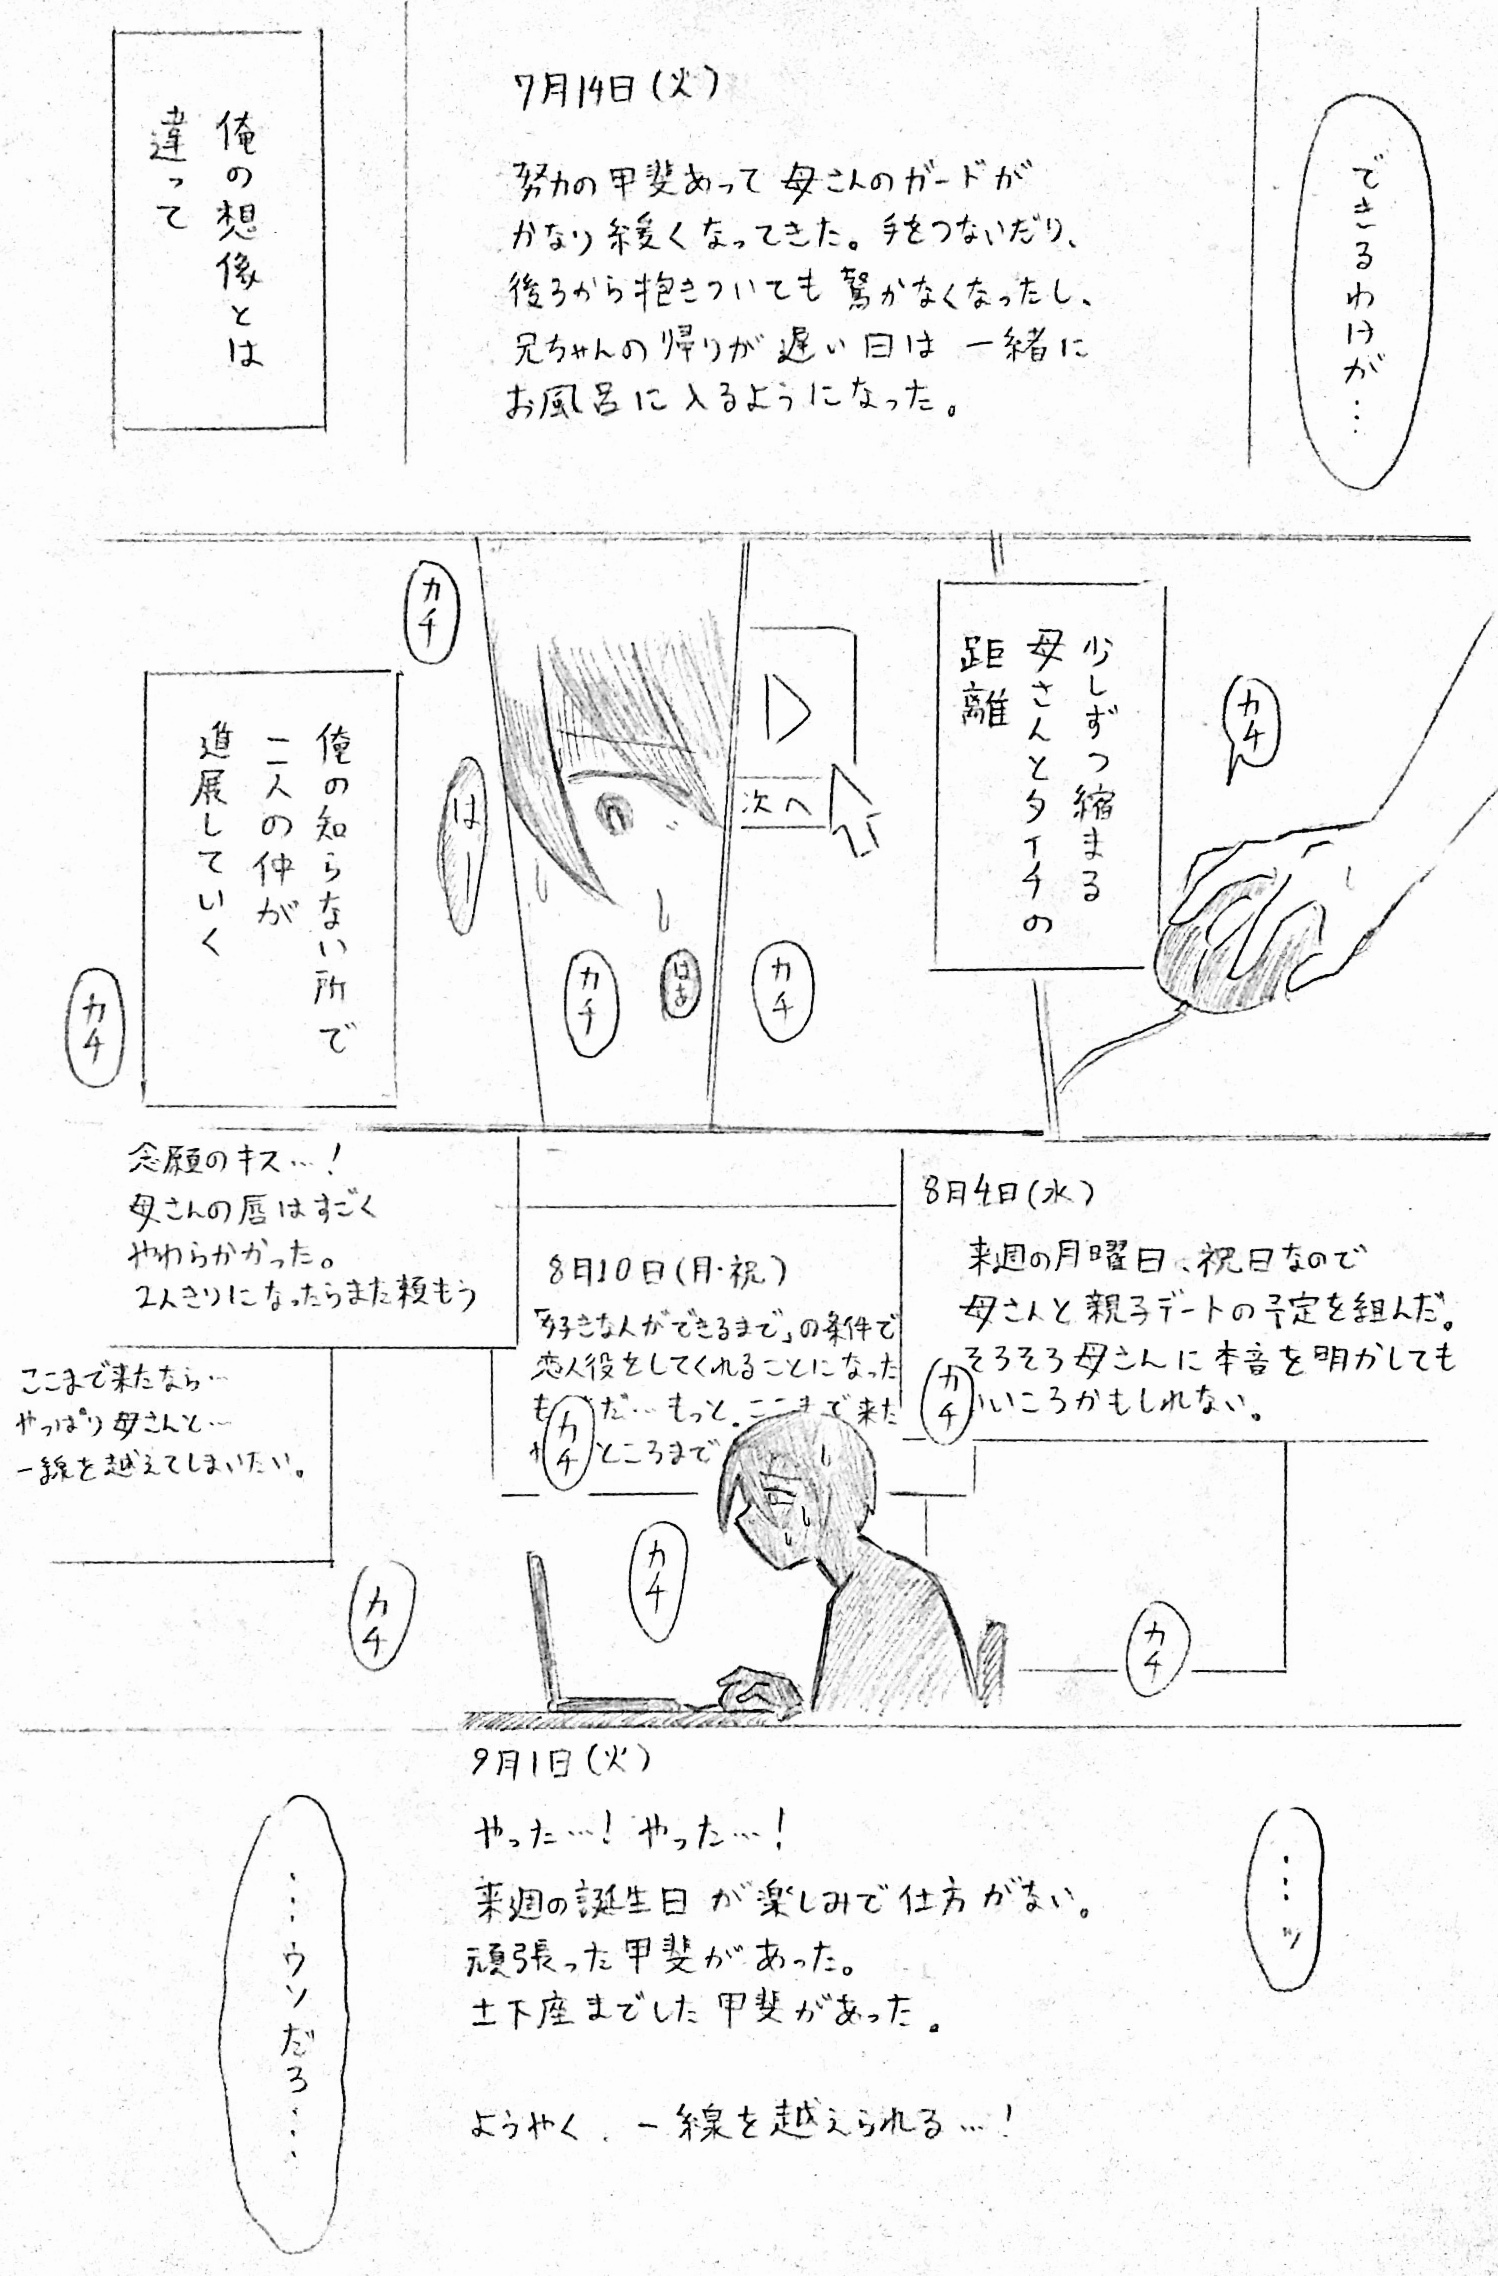 できるわけが…
7月14日(火)
努力の甲斐あって 母さんのガードが
かなり緩くなってきた。手をつないだり、
後ろから抱きついても驚かなくなったし、
兄ちゃんの帰りが遅い日は 一緒に
お風呂に入るようになった。
俺の想像とは
違って
カチ
少しずつ縮まる
母さんとタイチの
距離
次へ
カチ
はぁ
カチ
はー
カチ
俺の知らない所で
二人の仲が
進展していく
カチ
8月4日(水)
来週の月曜日、祝日なので
母さんと親子デートの予定を組んだ。
そろそろ母さんに本音を明かしても
いいころかもしれない。
カチ
8月10日(月・祝)
「好きな人ができるまで」の条件で
恋人役をしてくれることになった
も だ…もっと。ここまで来た
ところまで
カチ
念願のキス…!
母さんの唇はすごく
やわらかかった。
2人きりになったらまた頼もう
ここまで来たなら…
やっぱり母さんと…
一線を越えてしまいたい。
カチ
カチ
カチ
…ッ
9月1日(火)
やった…! やった…!
来週の誕生日が楽しみで仕方がない。
頑張った甲斐があった。
土下座までした甲斐があった。
ようやく、一線を越えられる…!
…ウソだろ…